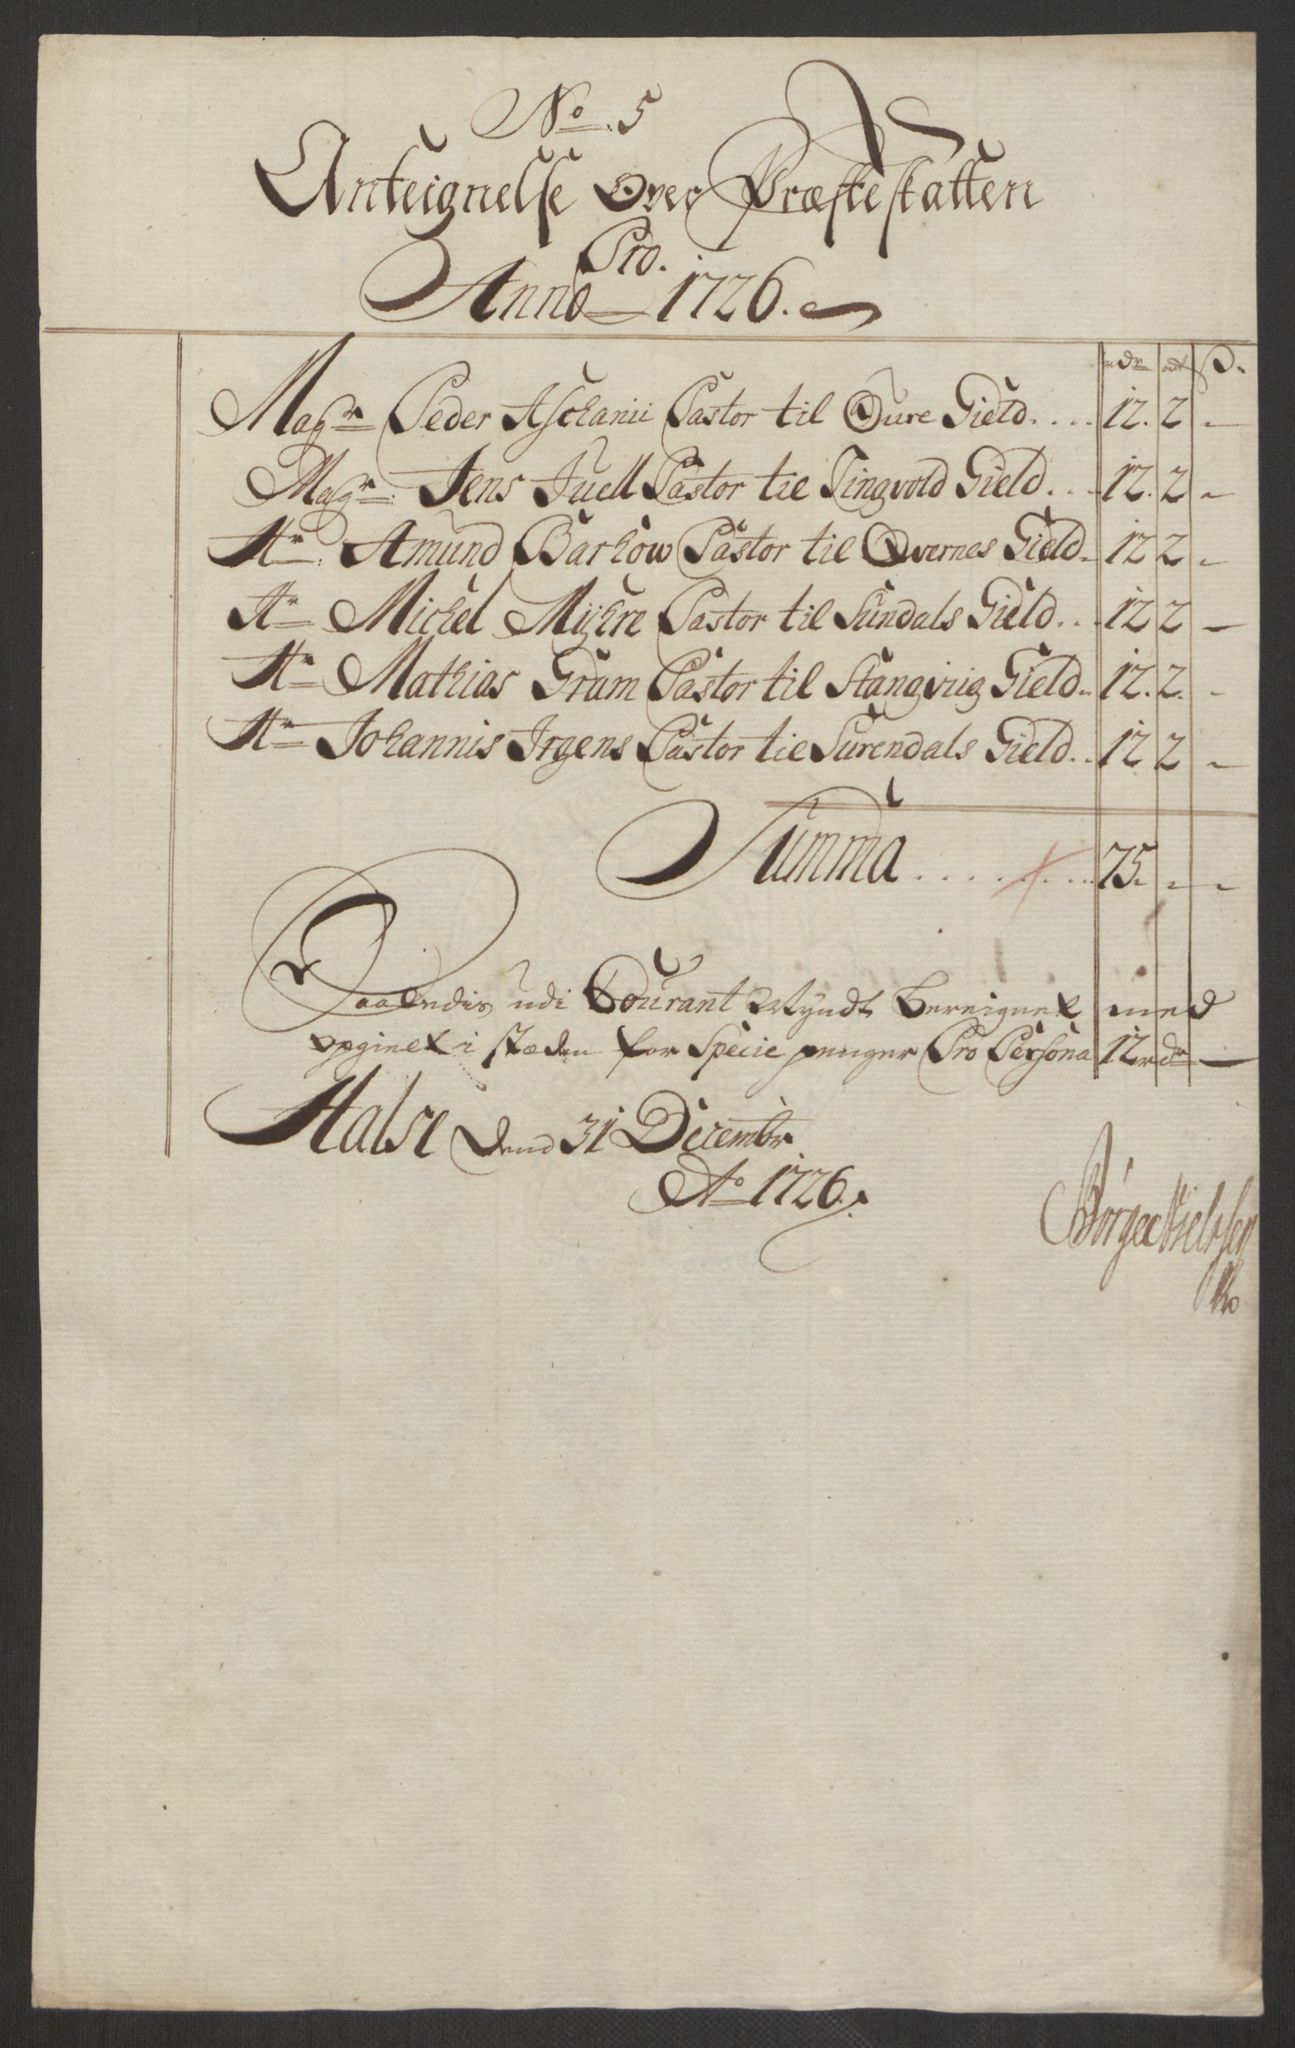 No. 5
Anteignelse Over Præsteskatten
Pro.
Anno 1726.
rdr ort ß.
Magr. Peder Aschanii Pastor til Øure Gield.... 12. 2 -
Magr. Jens Juell Pastor til Tingvold Gield... 12. 2 -
Hr. Amund Barhow Pastor til Qvernes Gield. 12 2 -
Hr. Michel Myhre Pastor til Sundals Gield... 12 2 -
Hr. Mathias Gram Pastor til Stangviig Gield. 12. 2. -
Hr. Johannis Irgens Pastor til Surendals Gield.. 12 2 -
Summa . . . . . . . 75. - -
udi Courant Myndt bereignet med
i stæden for Specie penger Pro Persona 12 rdr -
Halse dend 31 Decembr
Ao 1726.
Børge Nielssen